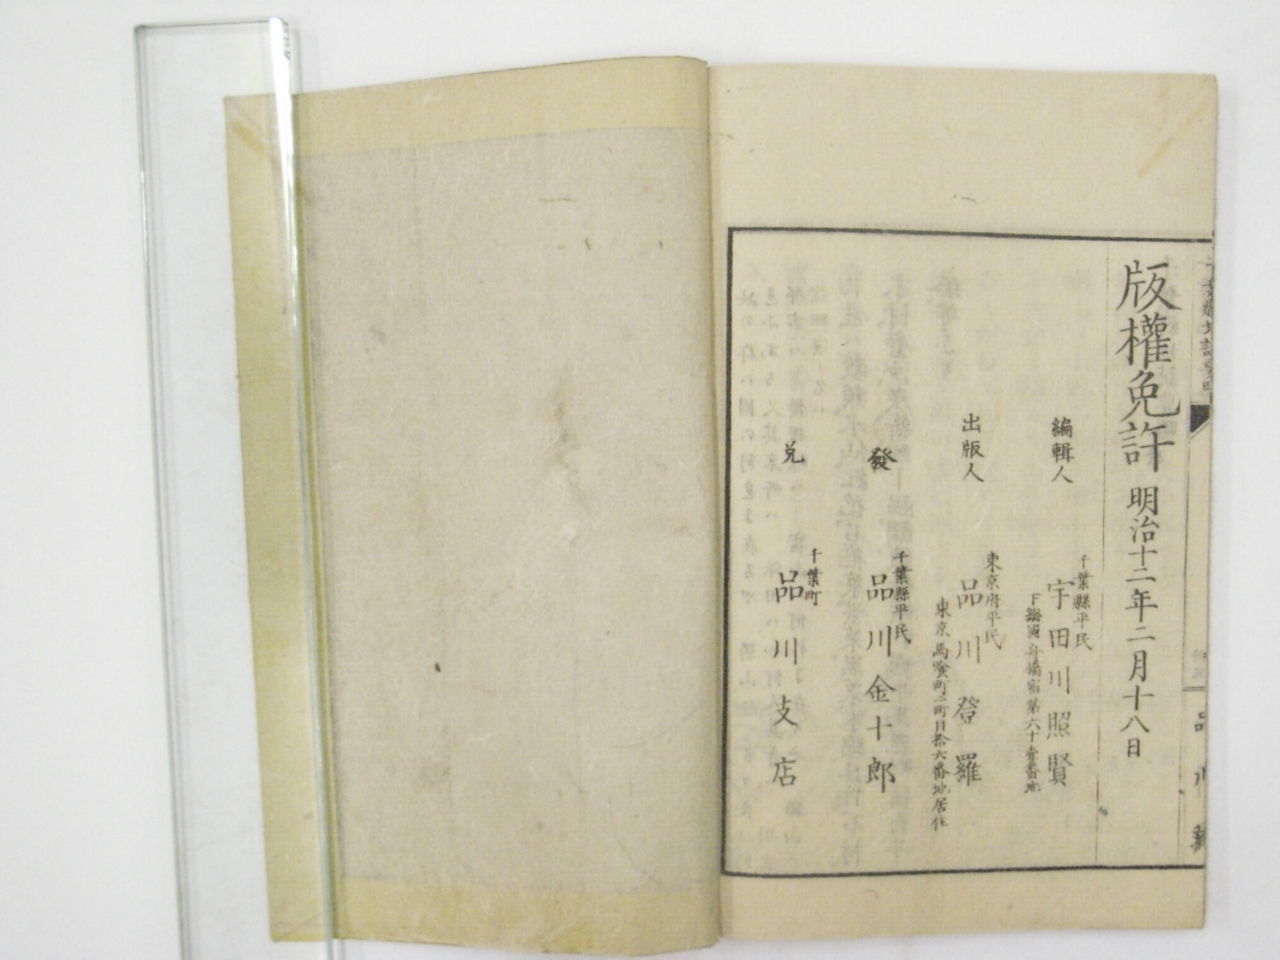 版權免許 明治十二年二月十八日
編輯人
千葉縣平民
宇田川照賢
下總國舟橋宿第六十壹番地
出版人
東京府平民
品川登羅
東京馬喰町二町目拾六番地居住
發
千葉縣平民
品川金十郎
兌
千葉町
品川支店